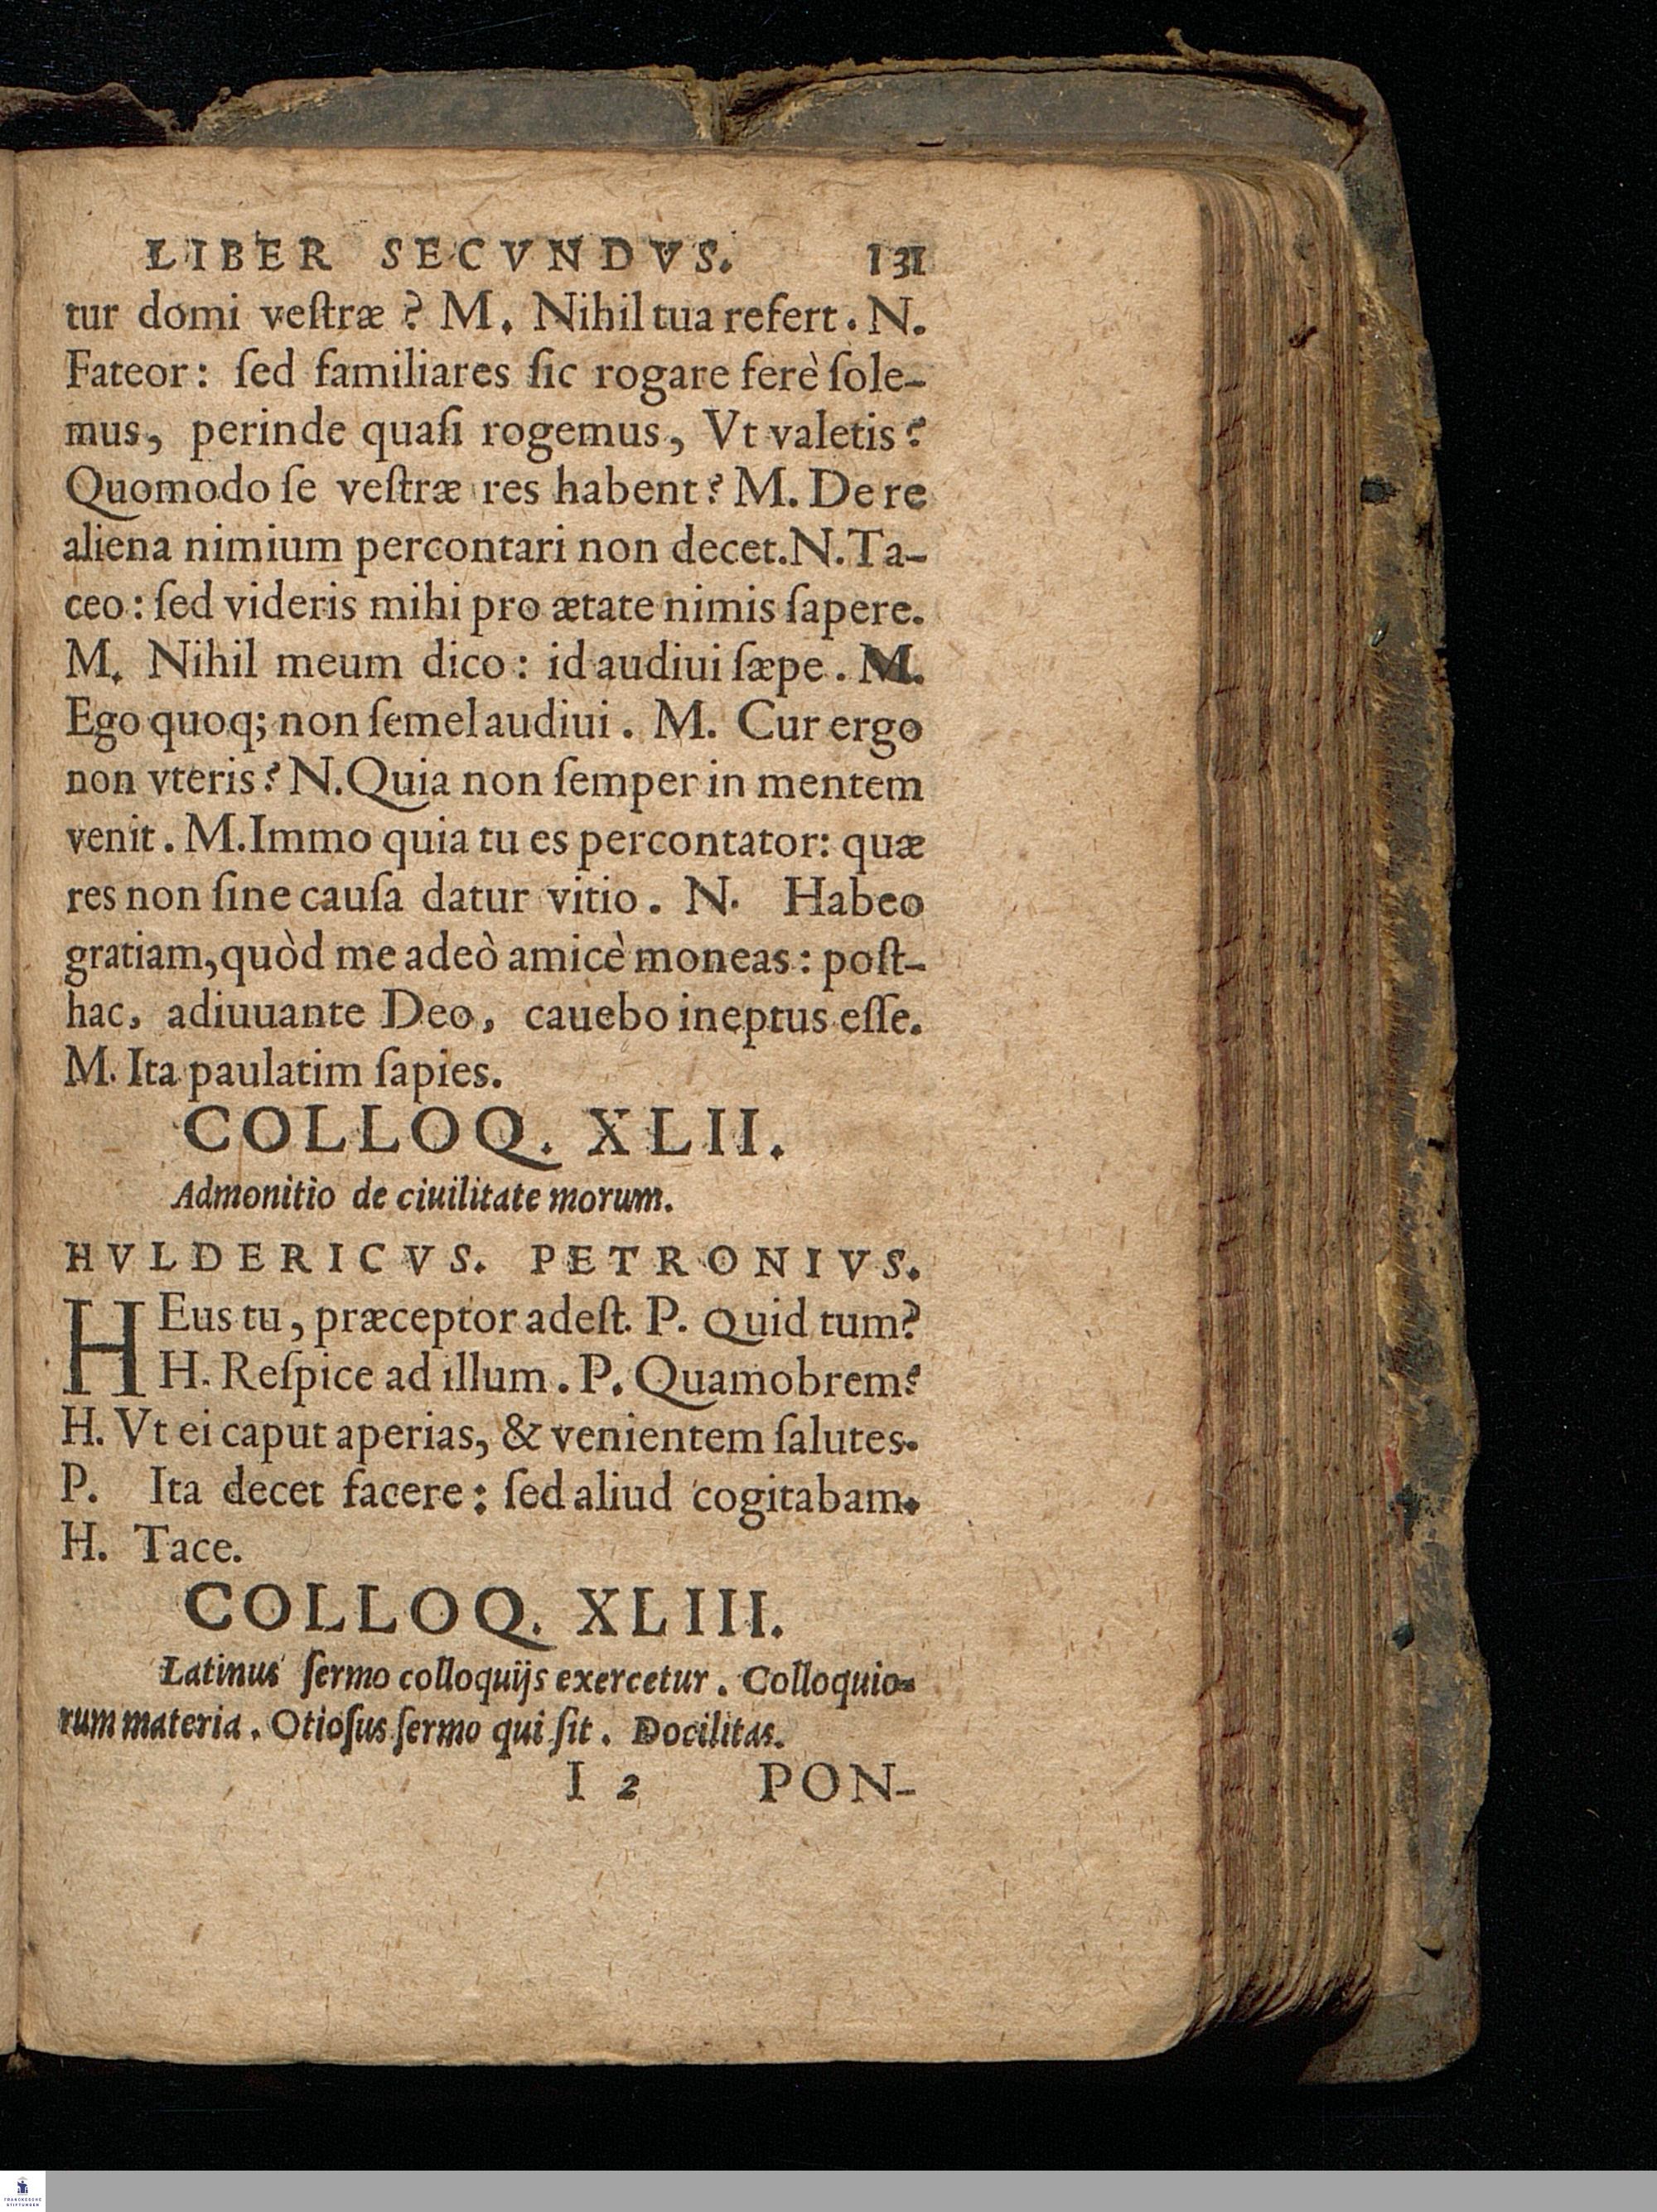 LIBER SECVNDVS. 131
tur domi veſtræ? M. Nihil tua refert. N.
Fateor: ſed familiares ſic rogare ferè ſole-
mus, perinde quaſi rogemus, Vt valetis?
Quomodo ſe veſtræ res habent? M. De re
aliena nimium percontari non decet. N. Ta-
ceo: ſed videris mihi pro ætate nimis ſapere.
M. Nihil meum dico: id audiui ſæpe. M.
Ego quoq; non ſemel audiui. M. Cur ergo
non vteris? N. Quia non ſemper in mentem
venit. M. Immo quia tu es percontator: quæ
res non ſine cauſa datur vitio. N. Habeo
gratiam, quòd me adeò amicè moneas: poſt-
hac, adiuuante Deo, cauebo ineptus eſſe.
M. Ita paulatim ſapies.
COLLOQ. XLII.
Admonitio de ciuilitate morum.
HVLDERICVS. PETRONIVS.
HEus tu, præceptor adeſt. P. Quid tum?
H. Reſpice ad illum. P. Quamobrem?
H. Vt ei caput aperias, & venientem ſalutes.
P. Ita decet facere: ſed aliud cogitabam.
H. Tace.
COLLOQ. XLIII.
Latinus ſermo colloquijs exercetur. Colloquio-
rum materia. Otioſus ſermo qui ſit. Docilitas.
I 2 PON-
FRANCKESCHE
STIFTUNGEN